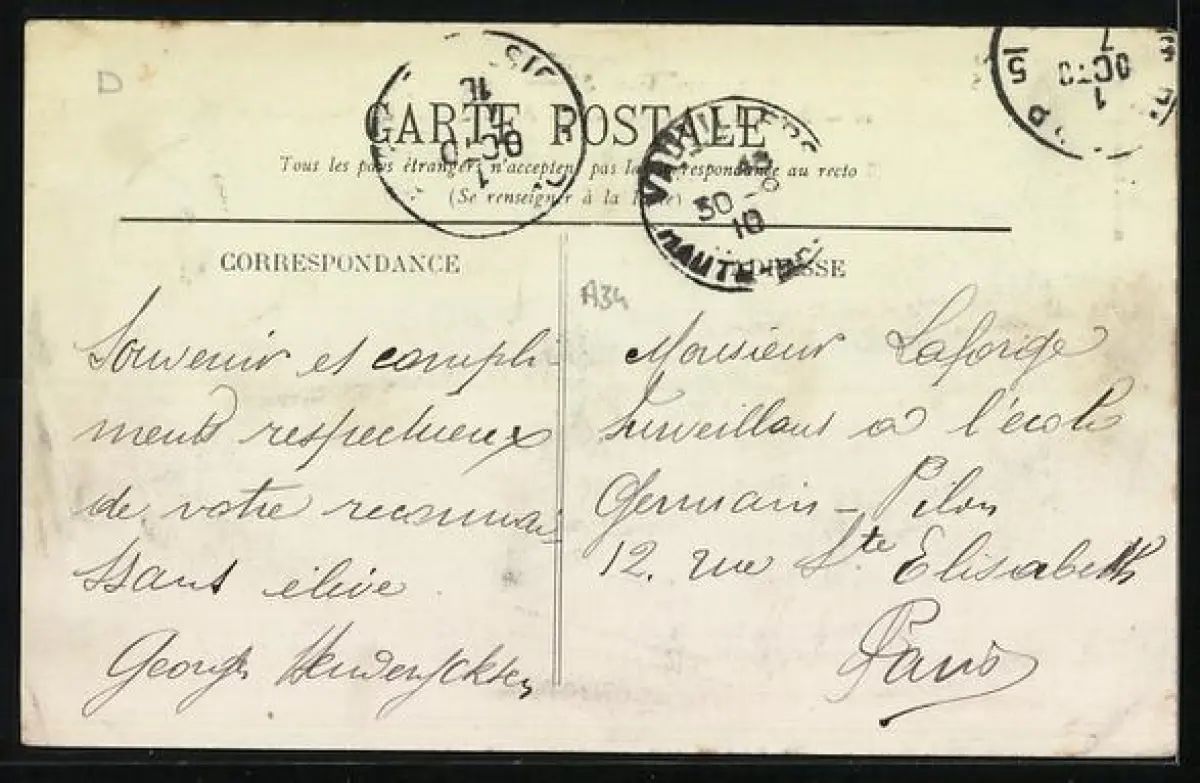 D
CARTE POSTALE
Tous les pays étrangers n'acceptent pas la correspondance au recto
(Se renseigner à la
1
OCTO
5
7
1
OCTO
10
VAUVILLERS
30 - 9
10
HAUTE-
CORRESPONDANCE
ADRESSE
A34
Souvenir et compli-
ments respectueux
de votre reconnai-
ssant élève
Georges
Monsieur Laforge
Surveillant à l'école
Germain-Pilon
12, rue Ste Elisabeth
Paris